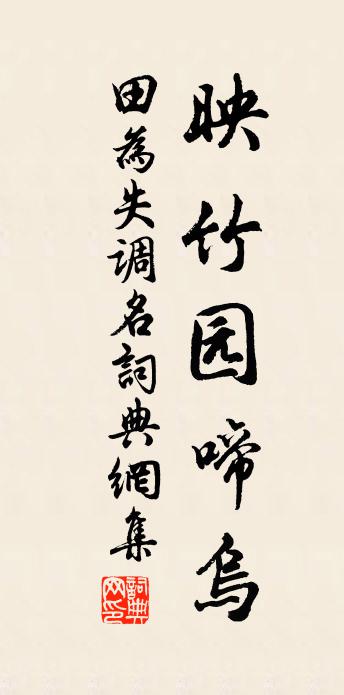 映竹园啼鸟
田為失调名詞典網集
詞典網印